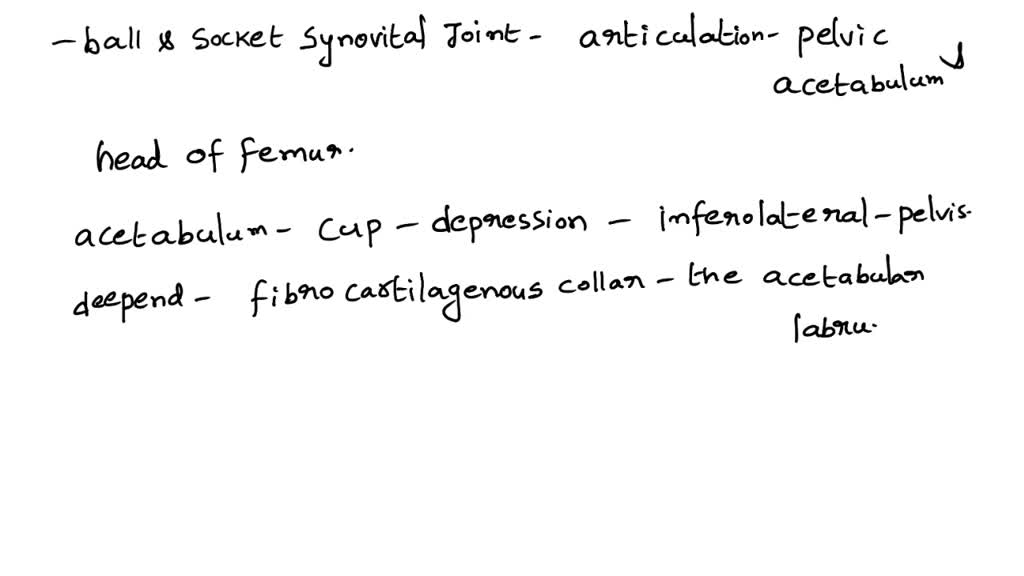 - ball & socket synovital Joint - articulation - pelvic &
acetabulum
head of femur.
acetabulum - cup - depression - inferolateral - pelvis.
deepend - fibro cartilagenous collar - the acetabular
labru.